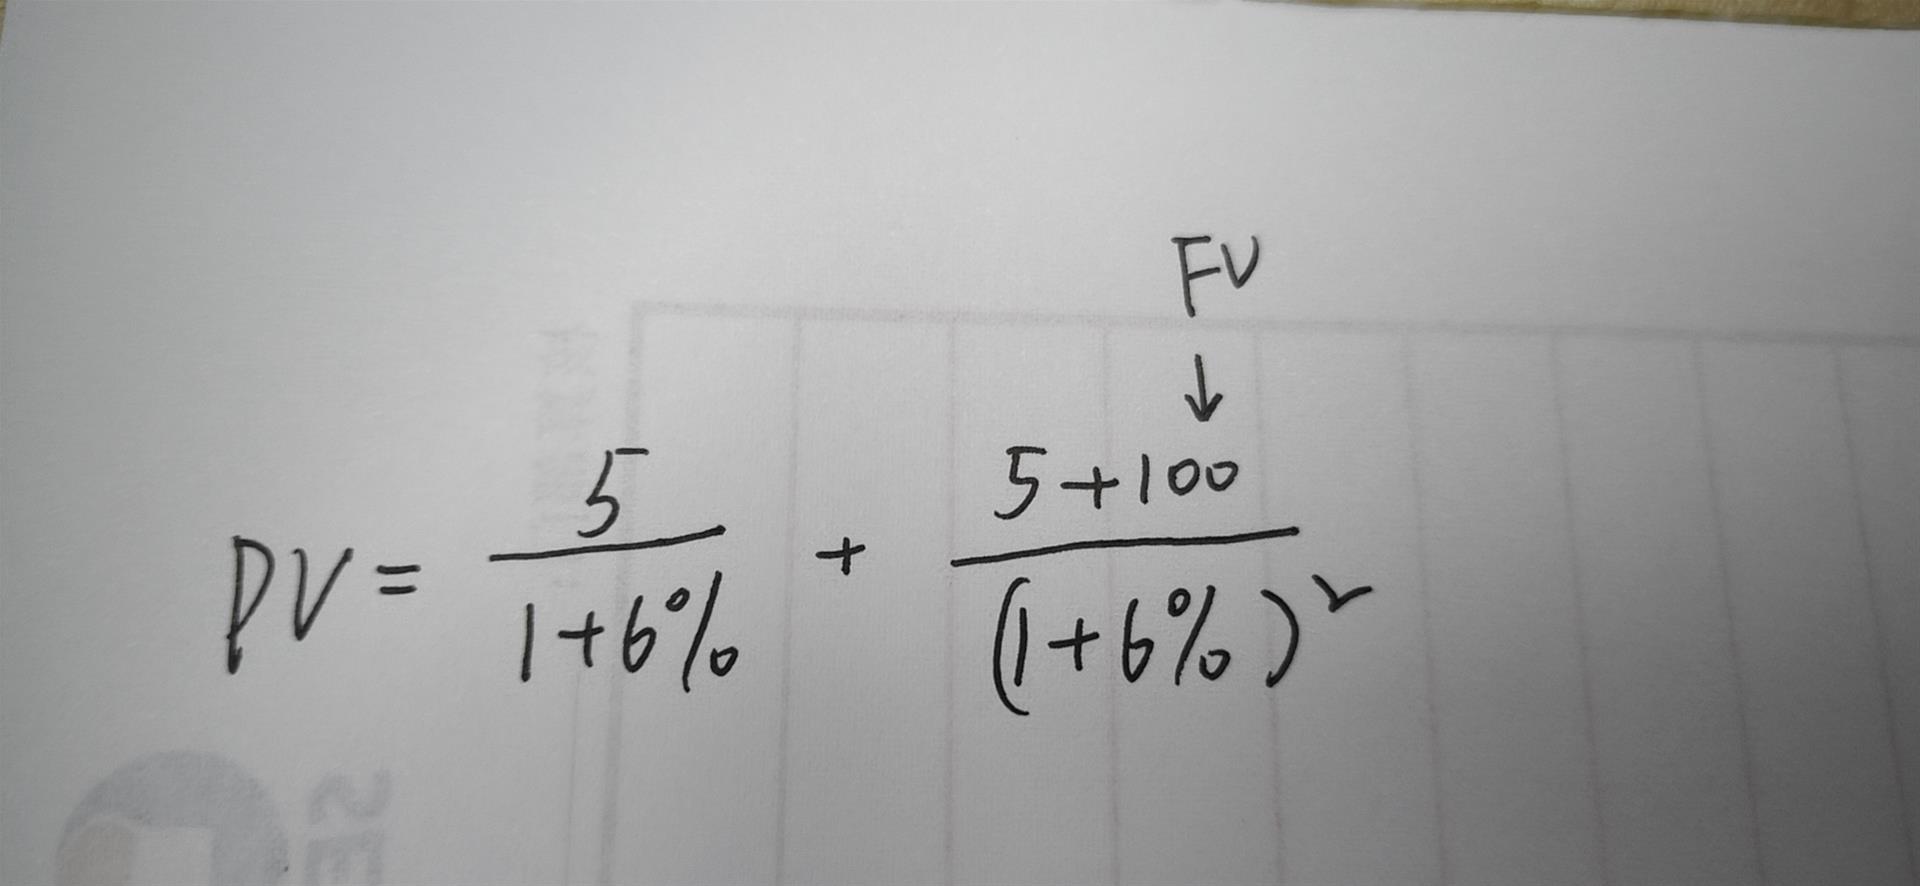 FV
↓
PV = 5/(1+6%) + (5+100)/(1+6%)²